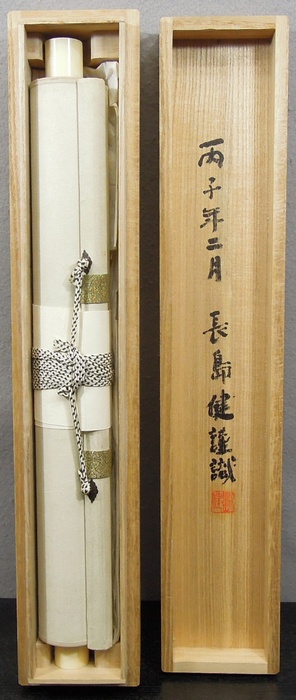 丙子年二月
長島健謹識